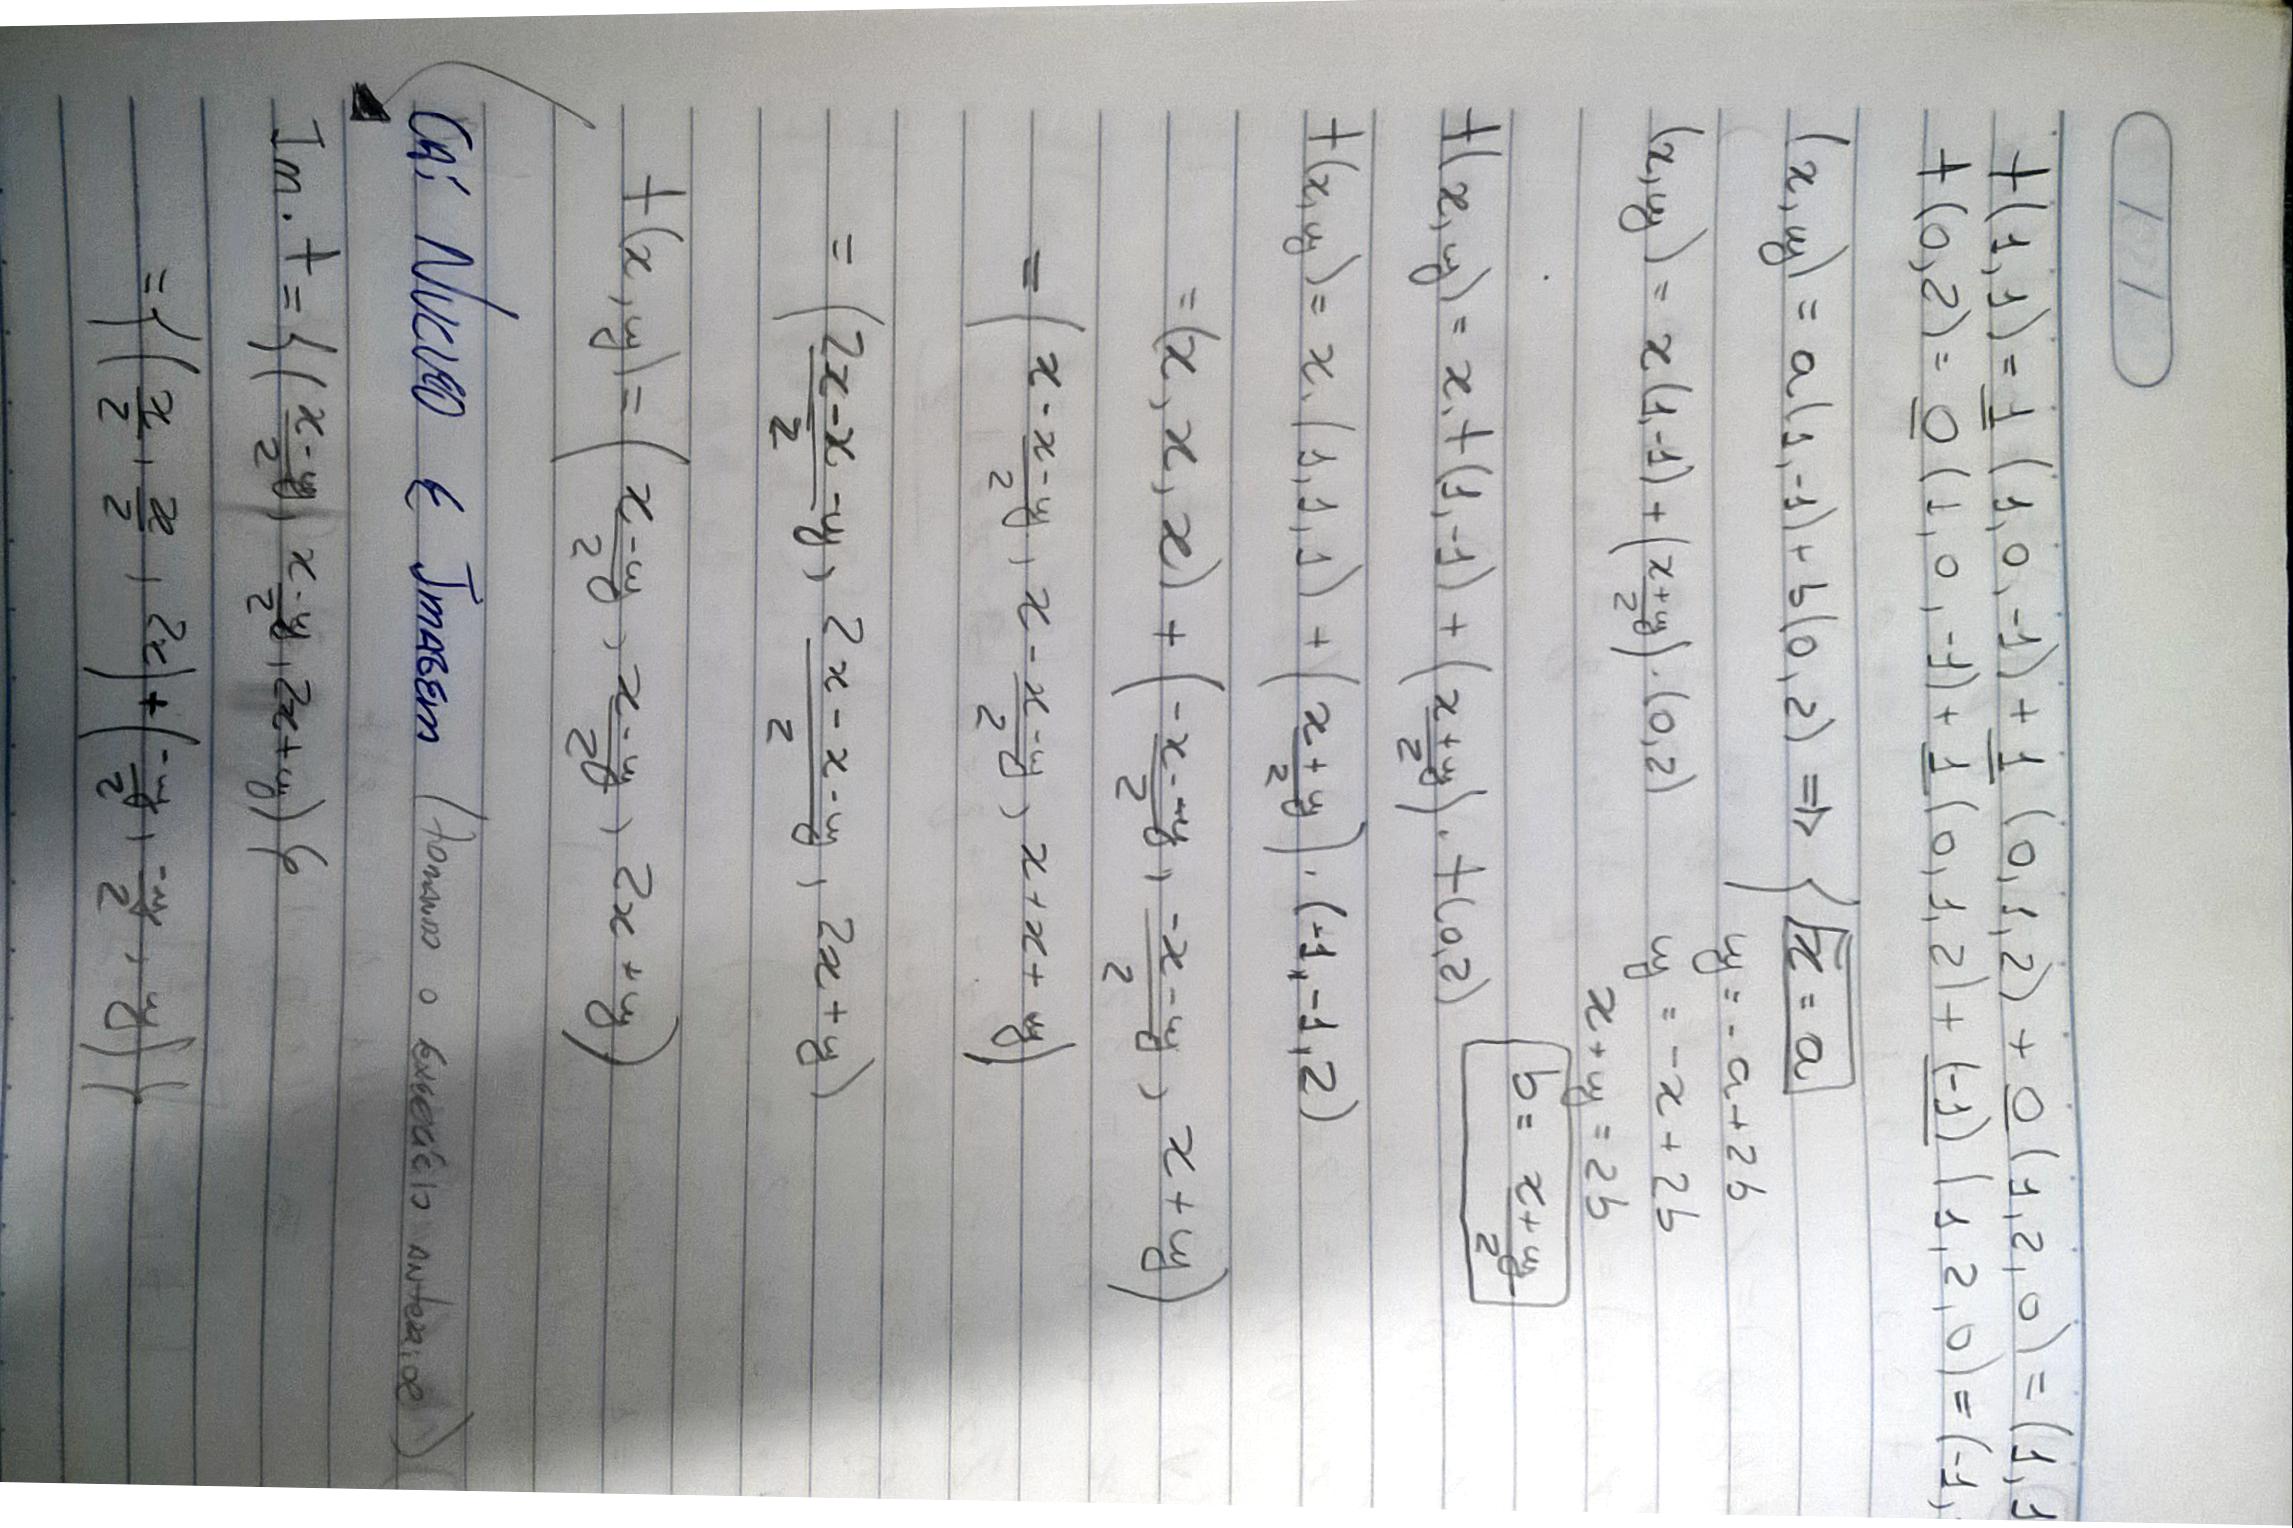 / /
t(1,1) = 1 (1,0,-1) + 1 (0,1,2) + 0 (1,2,0) = (1,1
t(0,2) = 0 (1,0,-1) + 1 (0,1,2) + (-1) (1,2,0) = (-1,
(x,y) = a(1,-1) + b(0,2) => { x = a
y = -a + 2b
(x,y) = x(1,-1) + (x+y/2) . (0,2)
y = -x + 2b
x + y = 2b
b = x+y/2
t(x,y) = x . t(1,-1) + (x+y/2) . t(0,2)
t(x,y) = x . (1,1,1) + (x+y/2) . (-1,-1,2)
= (x, x, x) + (-x-y/2, -x-y/2, x+y)
= (x -x-y/2, x -x-y/2, x+x+y)
= (2x-x-y/2, 2x-x-y/2, 2x+y)
t(x,y) = (x-y/2, x-y/2, 2x+y)
CAÍ NÚCLEO E IMAGEM (tomando o EXERCÍCIO ANTERIOR)
Im. t = {(x-y/2, x-y/2, 2x+y)}
= {(x/2, x/2, 2x) + (-y/2, -y/2, y)}